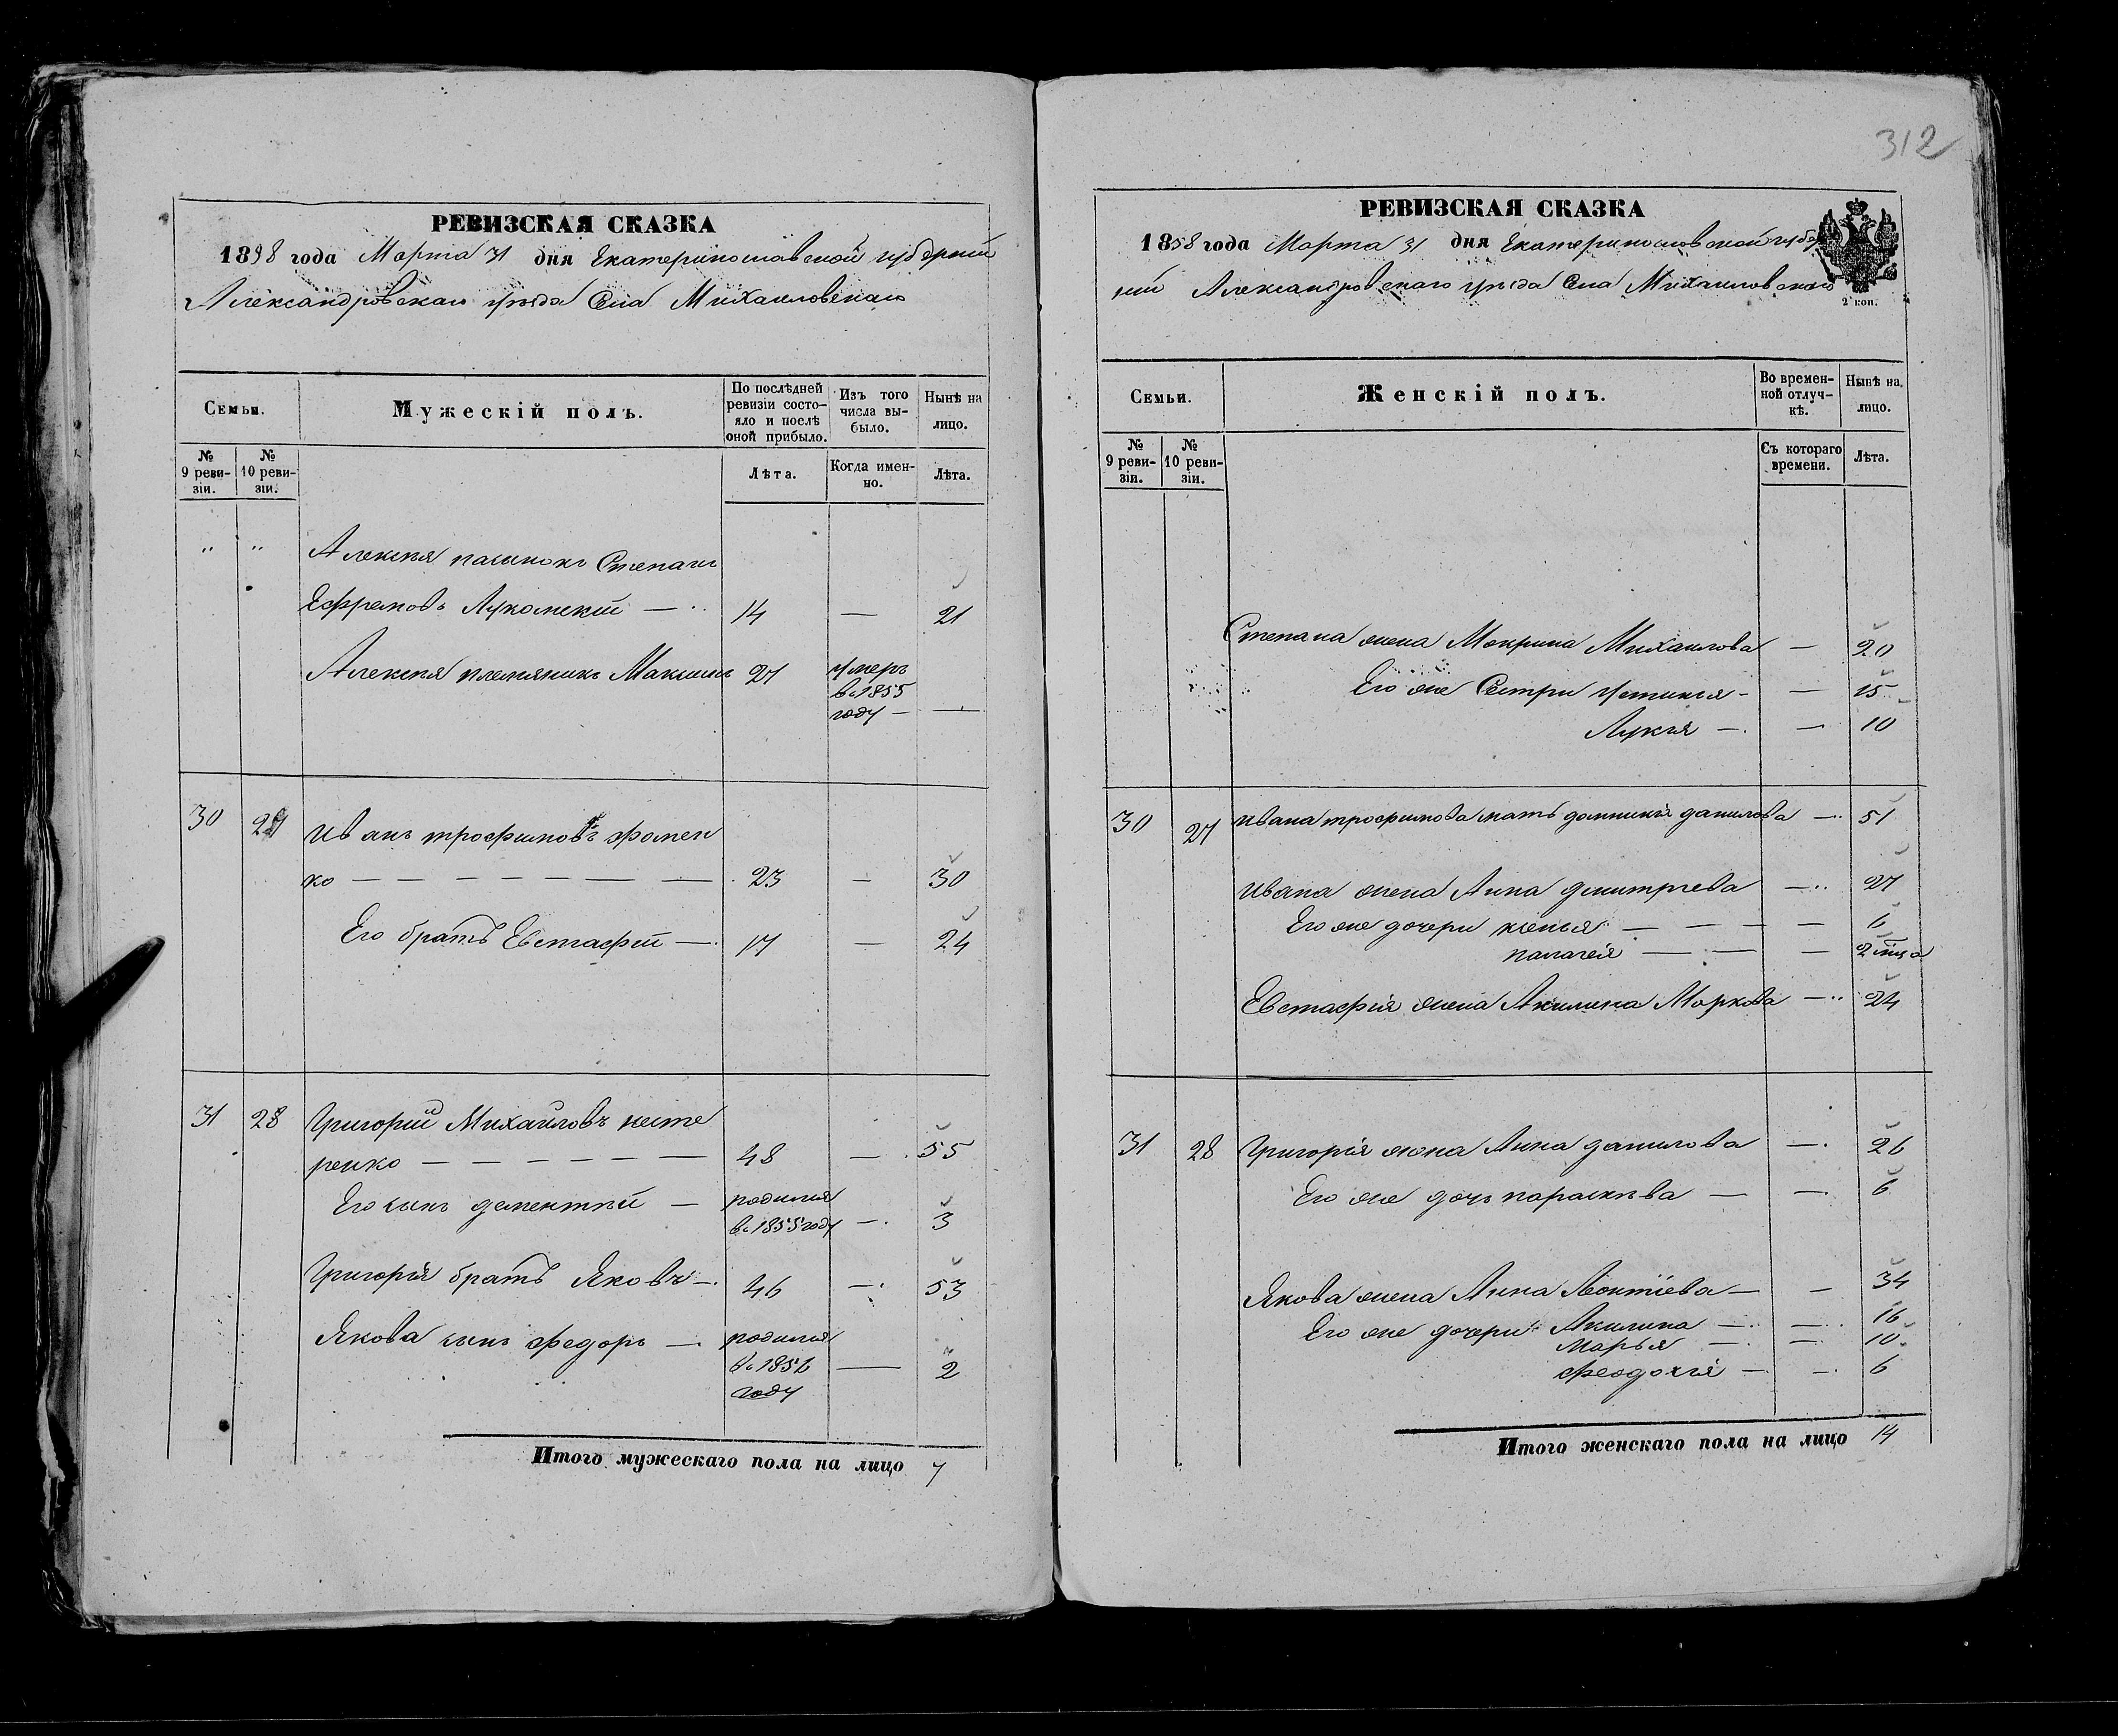 РЕВИЗСКАЯ СКАЗКА
1858 года Марта 31 дня Екатеринославской губернии
Александровскаго уезда Села Михайловскаго
Семьи.
Мужескій полъ.
По послѣдней ревизіи состо-
яло и послѣ
оной прибыло.
Изъ того
числа вы-
было.
Нынѣ на
лицо.
№
9 реви-
зіи.
№
10 реви-
зіи.
Лѣта.
Когда имен-
но.
Лѣта.
" " Алексѣя пасынокъ Степанъ
Ефремовъ Лукомскій — 14 — 21
Алексѣя племяникъ Максимъ 27 умеръ
въ 1855
году — —
30 27 Иванъ трофимовъ фомен
ко — — — — — — — 23 — 30
Его братъ Евстафій — 17 — 24
31 28 Григорій Михайловъ несте
ренко — — — — — — 48 — 55
Его сынъ дементій — родился
въ 1855 году — 3
Григорія братъ Яковъ — 46 — 53
Якова сынъ федоръ — родился
въ 1856 — 2
году
Итого мужескаго пола на лицо 7
312
РЕВИЗСКАЯ СКАЗКА
1858 года Марта 31 дня Екатеринославской губер
ніи Александровскаго уѣзда Села Михаиловскаго
2 коп.
Семьи.
Женскій полъ.
Во времен-
ной отлуч-
кѣ.
Нынѣ на
лицо.
№
9 реви-
зіи.
№
10 реви-
зіи.
Съ котораго
времени.
Лѣта.
Степана жена Мокрина Михаилова — 20
Его же Сестри Устинья — — 15
Лукія — — 10
30 27 ивана трофимова мать домникія данилова — 51
ивана жена Анна дмитрева — 27
Его же дочери ксенья — — — — 6
палагея — — — 2 мца
Евстафія жена Акилина Маркова — 24
31 28 Григорія жена Анна данилова — 26
Его же дочь параскѣва — — 6
Якова жена Анна Леонтіева — — 34
Его же дочери Акилина — — 16
марья — — 10
феодосія — — 6
Итого женскаго пола на лицо 14